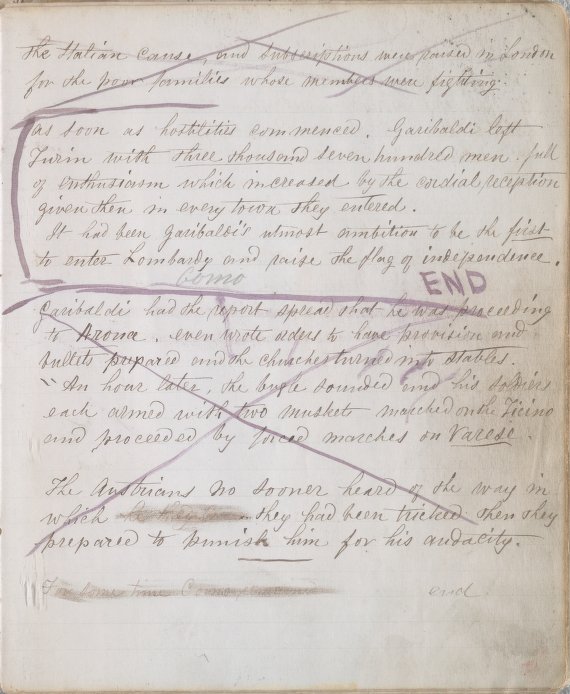 the Italian cause, and subscriptions were raised in London
for the poor families whose members were fighting.
As soon as hostilities commenced. Garibaldi left
Turin with three thousand seven hundred men. full
of enthusiasm which increased by the cordial reception
given then in every town they entered.
It had been Garibaldi's utmost ambition to be the first
to enter Lombardy and raise the flag of independence.
Como
END
Garibaldi had the report spread that he was proceeding
to Arona. even wrote orders to have provision and
bullets prepared and the churches turned into stables.
"An hour later, the bugle sounded and his soldiers
each armed with two muskets marched on the Ticino
and proceeded by forced marches on Varese.
The Austrians no sooner heard of the way in
which they had been tricked then they
prepared to punish him for his audacity.
For some time Como
end